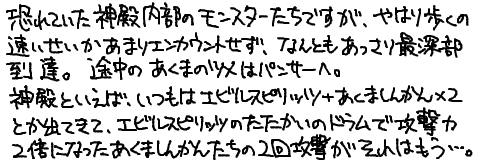 恐れていた神殿内部のモンスターたちですが、やはり歩くの
速いせいかあまりエンカウントせず、なんともあっさり最深部
到達。途中のあくまのツメはパンサーへ。
神殿といえば、いつもはエビルスピリッツ+あくましんかん×2
とか出てきて、エビルスピリッツのたたかいのドラムで攻撃力
2倍になったあくましんかんたちの2回攻撃がそれはもう…。